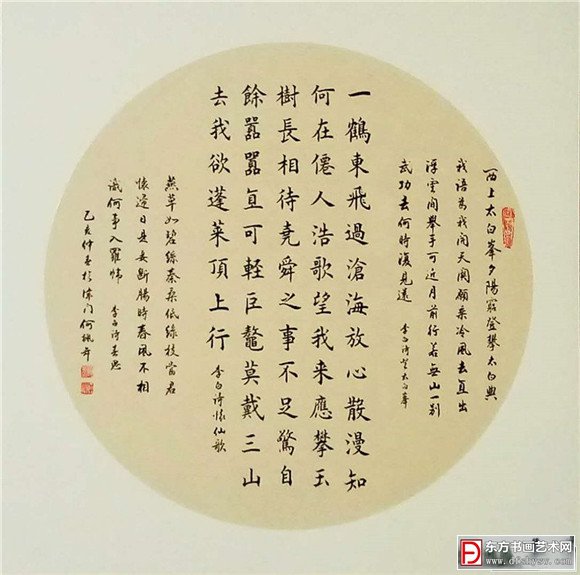 西上太白峯夕陽窮登攀太白與
我語為我開天關願乘冷風去直出
浮雲間舉手可近月前行若無山一別
武功去何時復見還 李白詩登太白峯
一鶴東飛過滄海放心散漫知
何在僊人浩歌望我來應攀玉
樹長相待堯舜之事不足驚自
餘囂囂直可軽巨鼇莫戴三山
去我欲蓬萊頂上行 李白詩懷仙歌
燕草如碧絲秦桑低綠枝當君
懷邊日是妾斷腸時春風不相
識何事入羅幃 李白詩春思
乙亥仲春於津门何
东方书画艺术网
www.dfshyw.com